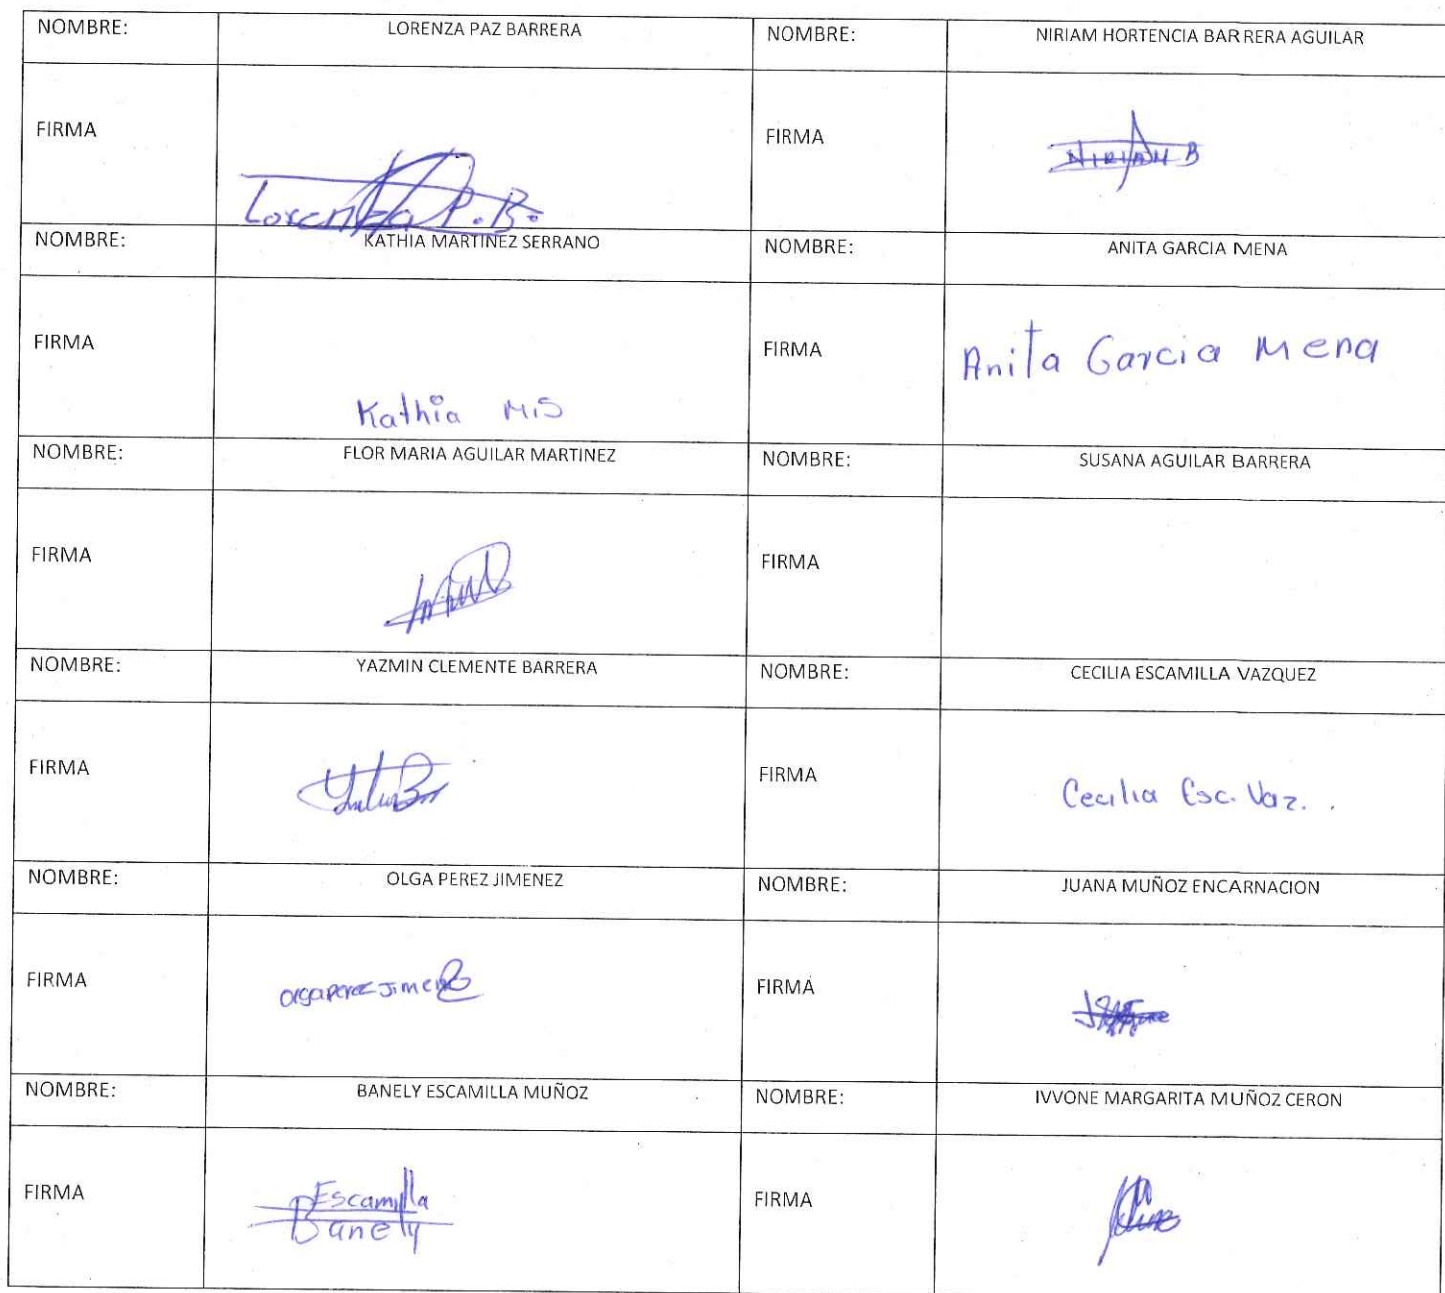 NOMBRE: LORENZA PAZ BARRERA NOMBRE: NIRIAM HORTENCIA BARRERA AGUILAR
FIRMA Lorenza P. B. FIRMA NIRIAM B
NOMBRE: KATHIA MARTINEZ SERRANO NOMBRE: ANITA GARCIA MENA
FIRMA Kathia M.S FIRMA Anita Garcia Mena
NOMBRE: FLOR MARIA AGUILAR MARTINEZ NOMBRE: SUSANA AGUILAR BARRERA
FIRMA FIRMA
NOMBRE: YAZMIN CLEMENTE BARRERA NOMBRE: CECILIA ESCAMILLA VAZQUEZ
FIRMA FIRMA Cecilia Esc. Vaz.
NOMBRE: OLGA PEREZ JIMENEZ NOMBRE: JUANA MUÑOZ ENCARNACION
FIRMA Olga Perez Jimenez FIRMA
NOMBRE: BANELY ESCAMILLA MUÑOZ NOMBRE: IVVONE MARGARITA MUÑOZ CERON
FIRMA Escamilla FIRMA
Banely